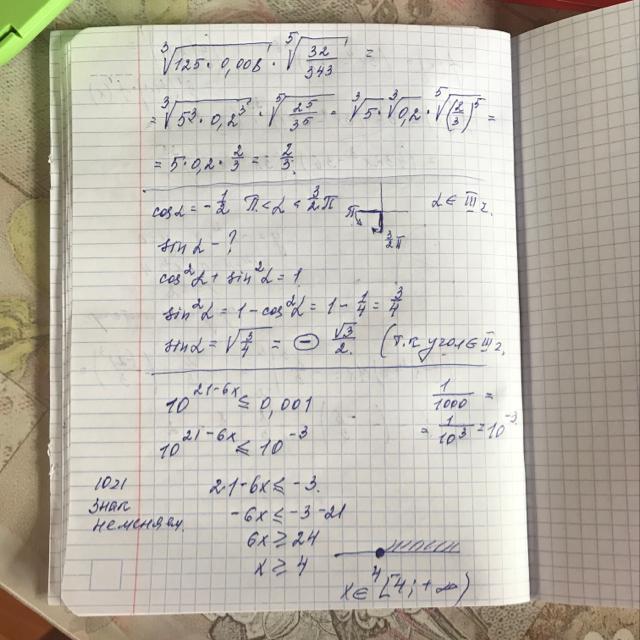 ∛(125 · 0,008) · ⁵√(32/343) =
= ∛(5³ · 0,2³) · ⁵√(2⁵/3⁵) = ∛5 · ∛0,2 · ⁵√(2/3)⁵ =
= 5 · 0,2 · 2/3 = 2/3.
cos α = -1/2 π < α < 3/2 π π 3/2 π α ∈ III г.
sin α - ?
cos² α + sin² α = 1
sin² α = 1 - cos² α = 1 - 1/4 = 3/4
sin α = √(3/4) = ⊖ √3/2. (т.к угол ∈ III г.
10^(21-6x) ≤ 0,001 1/1000 =
10^(21-6x) ≤ 10^(-3) = 1/10³ = 10^(-3).
10>1 21-6x ≤ -3.
знак -6x ≤ -3-21
не меняем 6x ≥ 24
x ≥ 4 4
x ∈ [4; +∞)